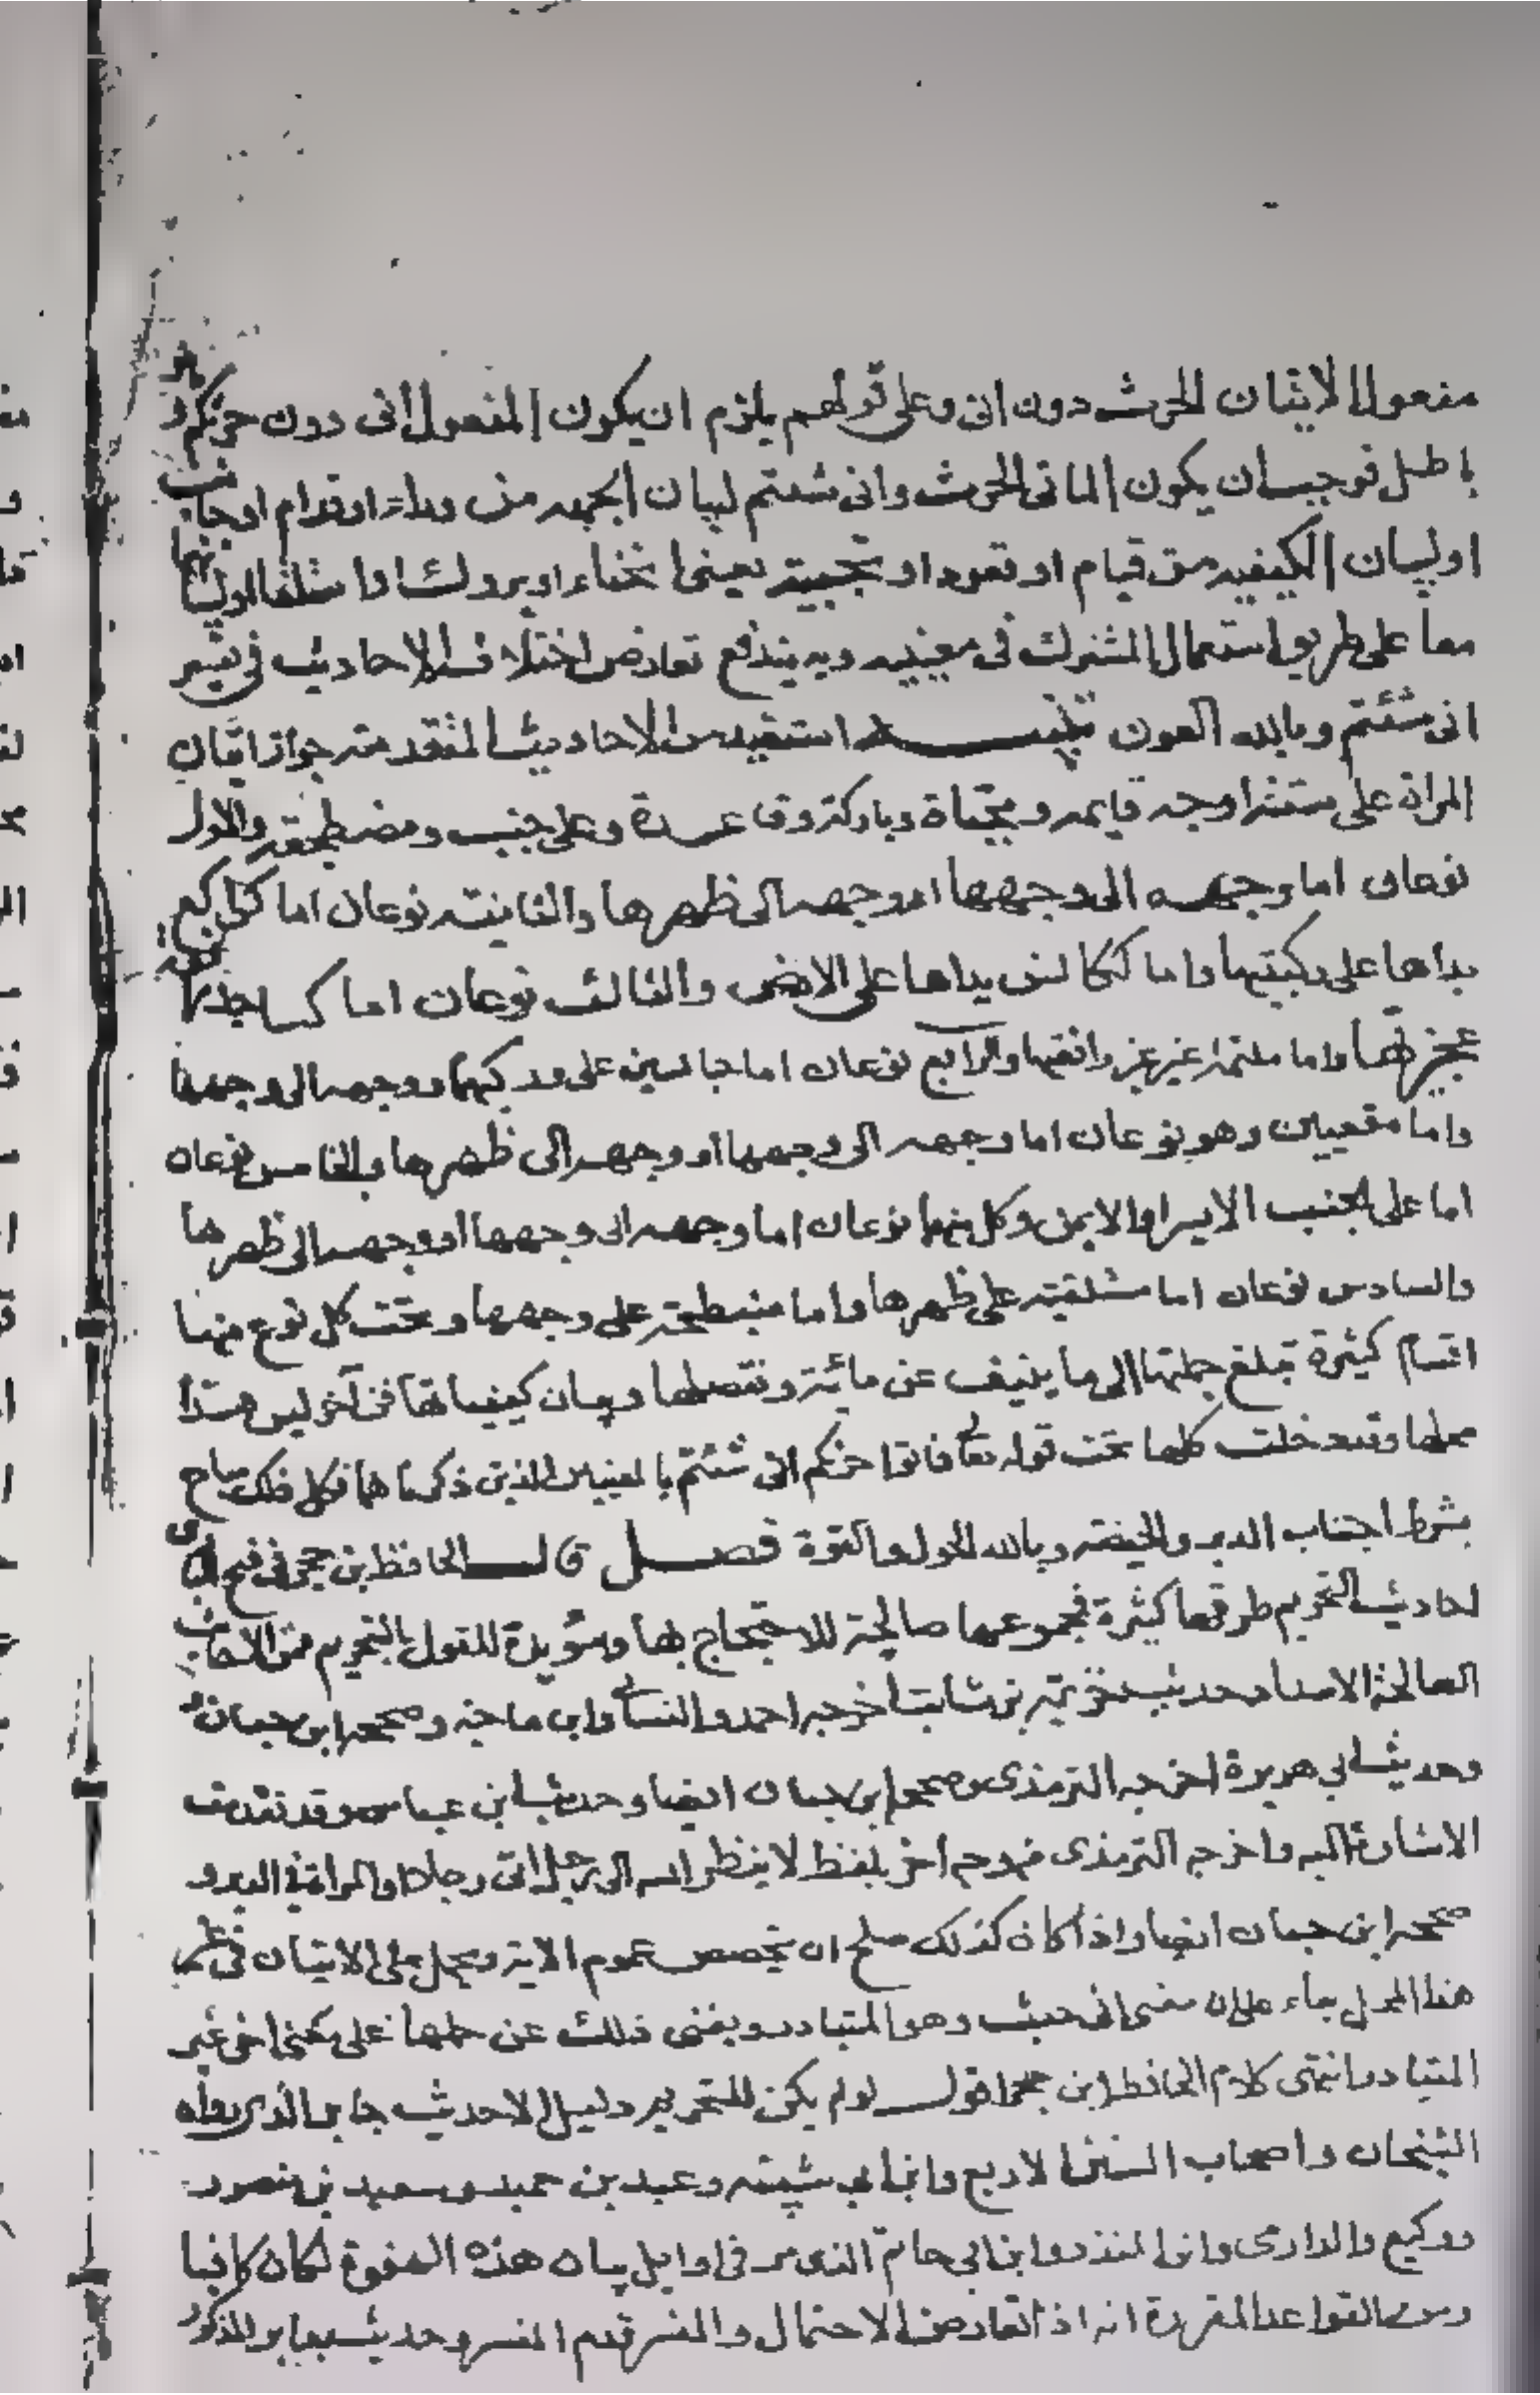 مفعول الاتيان الحرث دون انى وعلى قولهم يلزم ان يكون المفعول انى دون حرثكم وهو
باطل فوجب ان يكون الماتى الحرث وانى شئتم لبيان الجهه من وراء او قدام او جانب
او لبيان الكيفيه من قيام او قعود او تجبية يعنى انحناء او بروك او استلقا او لبيانهما
معا على طريق استعمال المشترك فى معنييه وبه يندفع تعارض اختلاف الاحاديث فى تفسير
انى شئتم وبالله العون تنبيه استفيد من الاحاديث المتقدمته جواز اتيان
المراة على ستة اوجه قايمه ومجباة وباركة وقاعدة وعلى جنب ومضطجعة والاول
نوعان اما وجهه الى وجهها او وجهه الى ظهرها والثانيته نوعان اما كراكع
يداها على ركبتيها واما يداها على الارض والثالث نوعان اما كساجدة
عجيزتها واما والرابع نوعان اما جالسين على وركيهما ووجهه الى وجهها
واما مقعيين وهو نوعان اما وجهه الى وجهها او وجهه الى ظهرها والخامس نوعان
اما على الجنب الايسر او الايمن وكل منهما نوعان اما وجهه الى وجهها او وجهه الى ظهرها
والسادس نوعان اما مستلقيته على ظهرها واما منبطحة على وجهها وتحت كل نوع منها
اقسام كثيرة تبلغ جملتها الى ما ينيف عن مائة وتفصيلها وبيان كيفياتها فن آخر ليس هذا
محلها وقد دخلت كلها تحت قوله تعالى فاتوا حرثكم انى شئتم بالمعنيين الذين ذكرناهما فكل ذلك مباح
بشرط اجتناب الدبر والحيضه وبالله الحول والقوة فصل قال الحافظ بن حجر فى فتح البارى
احاديث التحريم طرقها كثيرة فمجموعها صالحة للاحتجاج بها ومؤيدة للقول بالتحريم من الاحاديث
الصالحة الاسناد حديث خزيمة بن ثابت اخرجه احمد والنسائى وابن ماجه وصححه ابن حبان
وحديث ابى هريرة اخرجه الترمذى وصححه ابن حبان ايضا وحديث ابن عباس وقد تقدمت
الاشارة اليه واخرجه الترمذى من وجه آخر بلفظ لا ينظر الله الى رجل اتى رجلا او امراة فى الدبر و
صححه ابن حبان ايضا واذا كان كذلك صلح ان يخصص عموم الاية ويحمل على الاتيان فى غير
هذا المحل بناء على ان معنى انى حيث وهو المتبادر ويغنى ذلك عن حملها على معنى اخر غير
المتبادر انتهى كلام الحافظ ابن حجر اقول لو لم يكن للتحريم دليل الا حديث جابر الذى رواه
الشيخان واصحاب السنن الاربع وابن ابى شيبته وعبد بن حميد وسعيد بن منصور
ووكيع والدارمى وابن المنذر وابن ابى حاتم الذى مر فى اوايل بيان هذه لكان كافيا
ومن القواعد المقررة انه اذا تعارض الاحتمال والمفسر قدم المفسر وحديث جابر المذكور